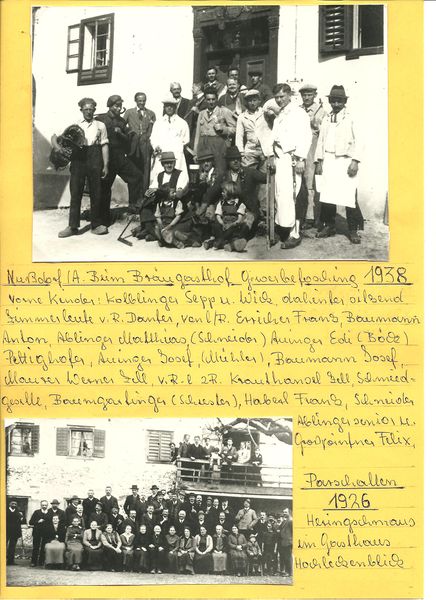 Nußdorf/A. Beim Bräugasthof Gewerbefasching 1938
Vorne Kinder: Kolblinger Sepp u. Wick, dahinter sitzend
Zimmerleute v.R. Danter, von l/R. Erricher Franz, Baumann
Anton, Ablinger Matthias (Schneider) Auinger Edi (Böck)
Pettighofer, Auinger Josef, (Mühler), Baumann Josef,
Maurer Werner Gsll. v.R. l 2R. Krauthansel Gsll, Schmied-
geselle, Baumgartinger (Schuster), Haberl Franz, Schneider
Ablinger senior u.
Felix,
Parschallen
1926
Heringschmaus
im Gasthaus
Hochleckenblick